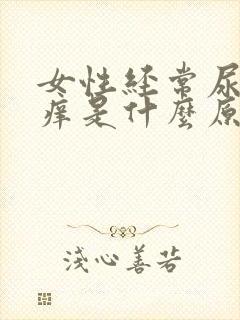 女性经常尿
痒是什麼原
浅心善若